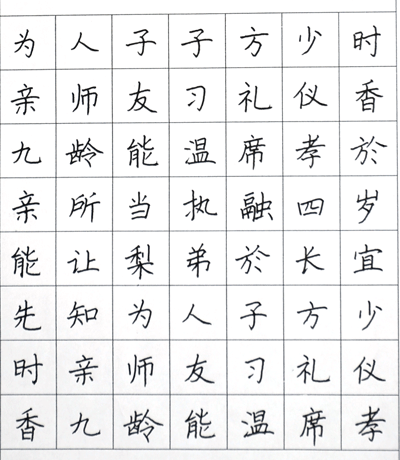 为人子子方少时
亲师友习礼仪香
九龄能温席孝於
亲所当执融四岁
能让梨弟於长宜
先知为人子方少
时亲师友习礼仪
香九龄能温席孝